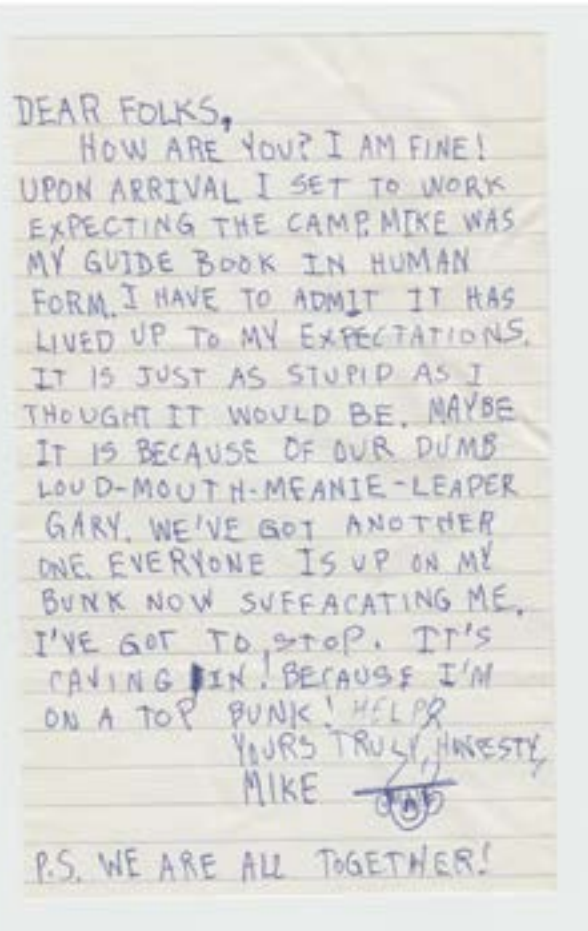 DEAR FOLKS,
HOW ARE YOU? I AM FINE!
UPON ARRIVAL I SET TO WORK
EXPECTING THE CAMP. MIKE WAS
MY GUIDE BOOK IN HUMAN
FORM. I HAVE TO ADMIT IT HAS
LIVED UP TO MY EXPECTATIONS.
IT IS JUST AS STUPID AS I
THOUGHT IT WOULD BE. MAYBE
IT IS BECAUSE OF OUR DUMB
LOUD-MOUTH-MEANIE-LEAPER
GARY. WE'VE GOT ANOTHER
ONE. EVERYONE IS UP ON MY
BUNK NOW SUFFACATING ME.
I'VE GOT TO STOP. IT'S
CAVING IN! BECAUSE I'M
ON A TOP BUNK! HELP
YOURS TRULY, HONESTY,
MIKE
P.S. WE ARE ALL TOGETHER!